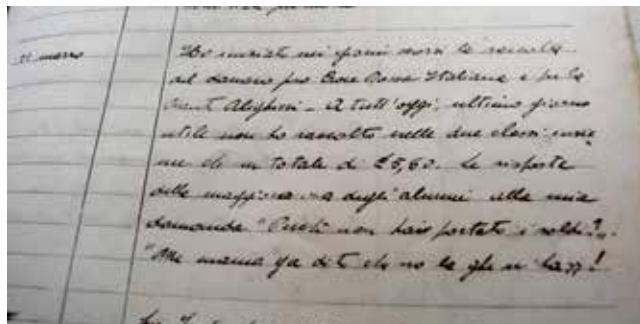 21 marzo
Ho iniziato nei giorni scorsi la raccolta
del danaro pro Croce Rossa Italiana e per la
Dante Alighieri - A tutt'oggi, ultimo giorno
utile non ho raccolto nelle due classi insie
me che un totale di £5,60. La risposta
della maggioranza degli alunni alla mia
domanda "Perché non hai portato i soldi?"
"Me mama g'a dit che no la ghe n'ha